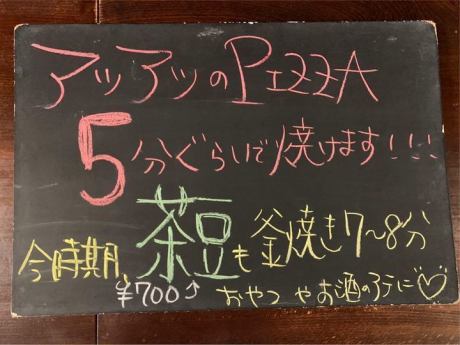 アツアツのPIZZA
5分ぐらいで焼けます!!!
今時期、茶豆も釜焼き7〜8分
¥700⤴ おやつやお酒のアテに♡